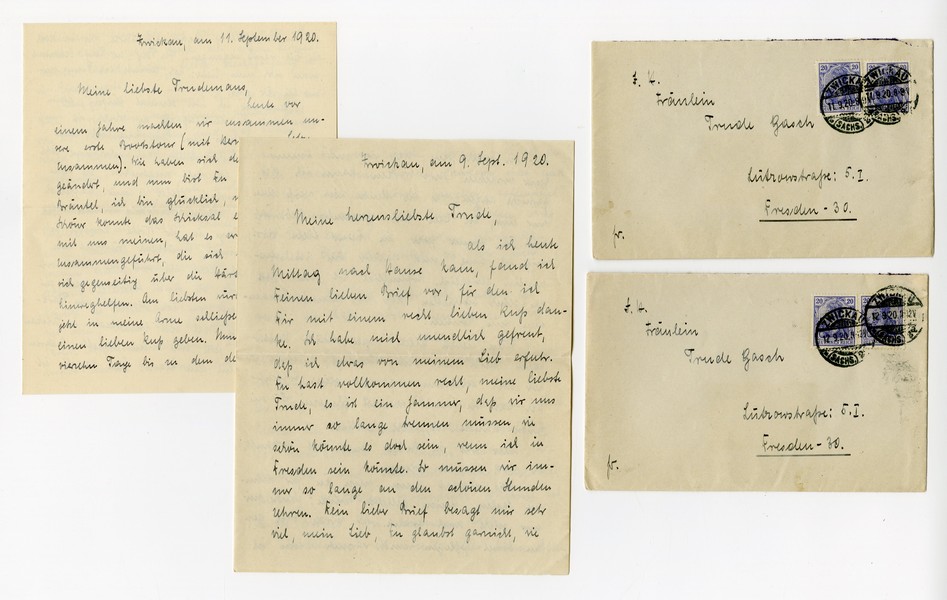 Zwickau, am 11. September 1920.
Meine liebste Trudemaus,
heute vor
einem Jahre machten wir zusammen un-
sere erste Bootstour (mit
zusammen). Wie haben sich
geändert, und nun bist Du
Bräutel, ich bin glücklich,
Schön konnte das Schicksal
mit uns meinen, hat es
zusammengeführt, die sich
sich gegenseitig über die
hinweghelfen. Am liebsten
jetzt in meine Arme
einen lieben Kuß geben. Nun
vierzehn Tage bis zu dem
Zwickau, am 9. Sept. 1920.
Meine herzensliebste Trude,
als ich heute
Mittag nach Hause kam, fand ich
Deinen lieben Brief vor, für den ich
Dir mit einem recht lieben Kuß dan-
ke. Ich habe mich unendlich gefreut,
daß ich etwas von meinem Lieb erfuhr.
Du hast vollkommen recht, meine liebste
Trude, es ist ein Jammer, daß wir uns
immer so lange trennen müssen, wie
schön könnte es doch sein, wenn ich in
Dresden sein könnte. So müssen wir im-
mer so lange an den schönen Stunden
zehren. Dein lieber Brief besagt mir sehr
viel, mein Lieb, Du glaubst garnicht, wie
F. H.
Fräulein
Trude Gasch
Lützowstraße: 5. I.
Dresden - 30.
fr.
20 20
ZWICKAU
11.9.20.
(SACHS.)
F. H.
Fräulein
Trude Gasch
Lützowstraße: 5. I.
Dresden - 30.
fr.
20 20
ZWICKAU
12.9.20.
(SACHS.)